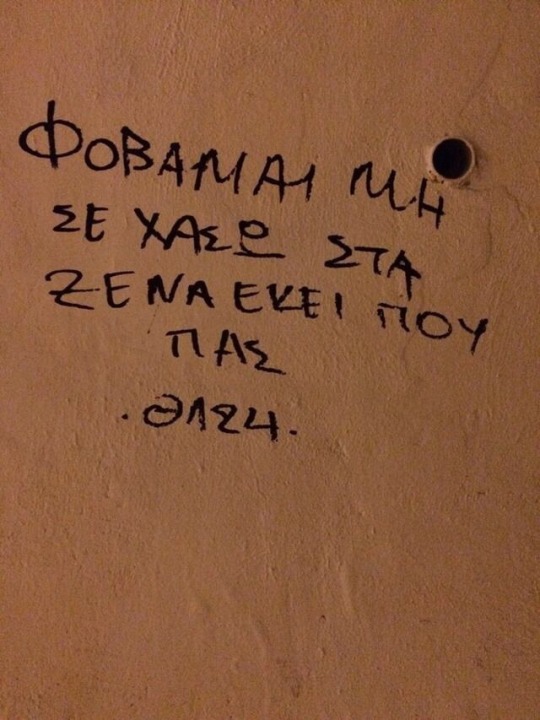 ΦΟΒΑΜΑΙ ΜΗ
ΣΕ ΧΑΣΩ ΣΤΑ
ΞΕΝΑ ΕΚΕΙ ΠΟΥ
ΠΑΣ